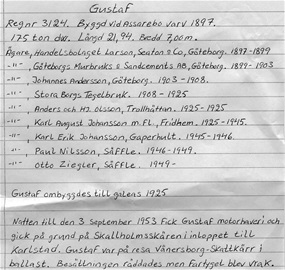 Gustaf
Regnr 3124. Byggd vid Assarebo varv 1897.
175 ton dw. Längd 21,94. Bedd 7,00m.
Ägare, Handelsbolaget Larson, Seaton & Co, Göteborg. 1897-1899
-"- Göteborgs Murbruks & Sandcements AB, Göteborg. 1899-1903
-"- Johannes Andersson, Göteborg. 1903-1908.
-"- Stora Bergs Tegelbruk. 1908-1925
-"- Anders och Hj. Olsson, Trollhättan. 1925-1925
-"- Karl August Johansson m.fl., Fridhem. 1925-1945.
-"- Karl Erik Johansson, Gaperhult. 1945-1946.
-"- Paul Nilsson, Säffle. 1946-1949.
-"- Otto Ziegler, Säffle. 1949-
Gustaf ombyggdes till galeas 1925
Natten till den 3 September 1953 fick Gustaf motorhaveri och
gick på grund på Skallholmsskären i inloppet till
Karlstad. Gustaf var på resa Vänersborg-Skattkärr i
ballast. Besättningen räddades men fartyget blev vrak.